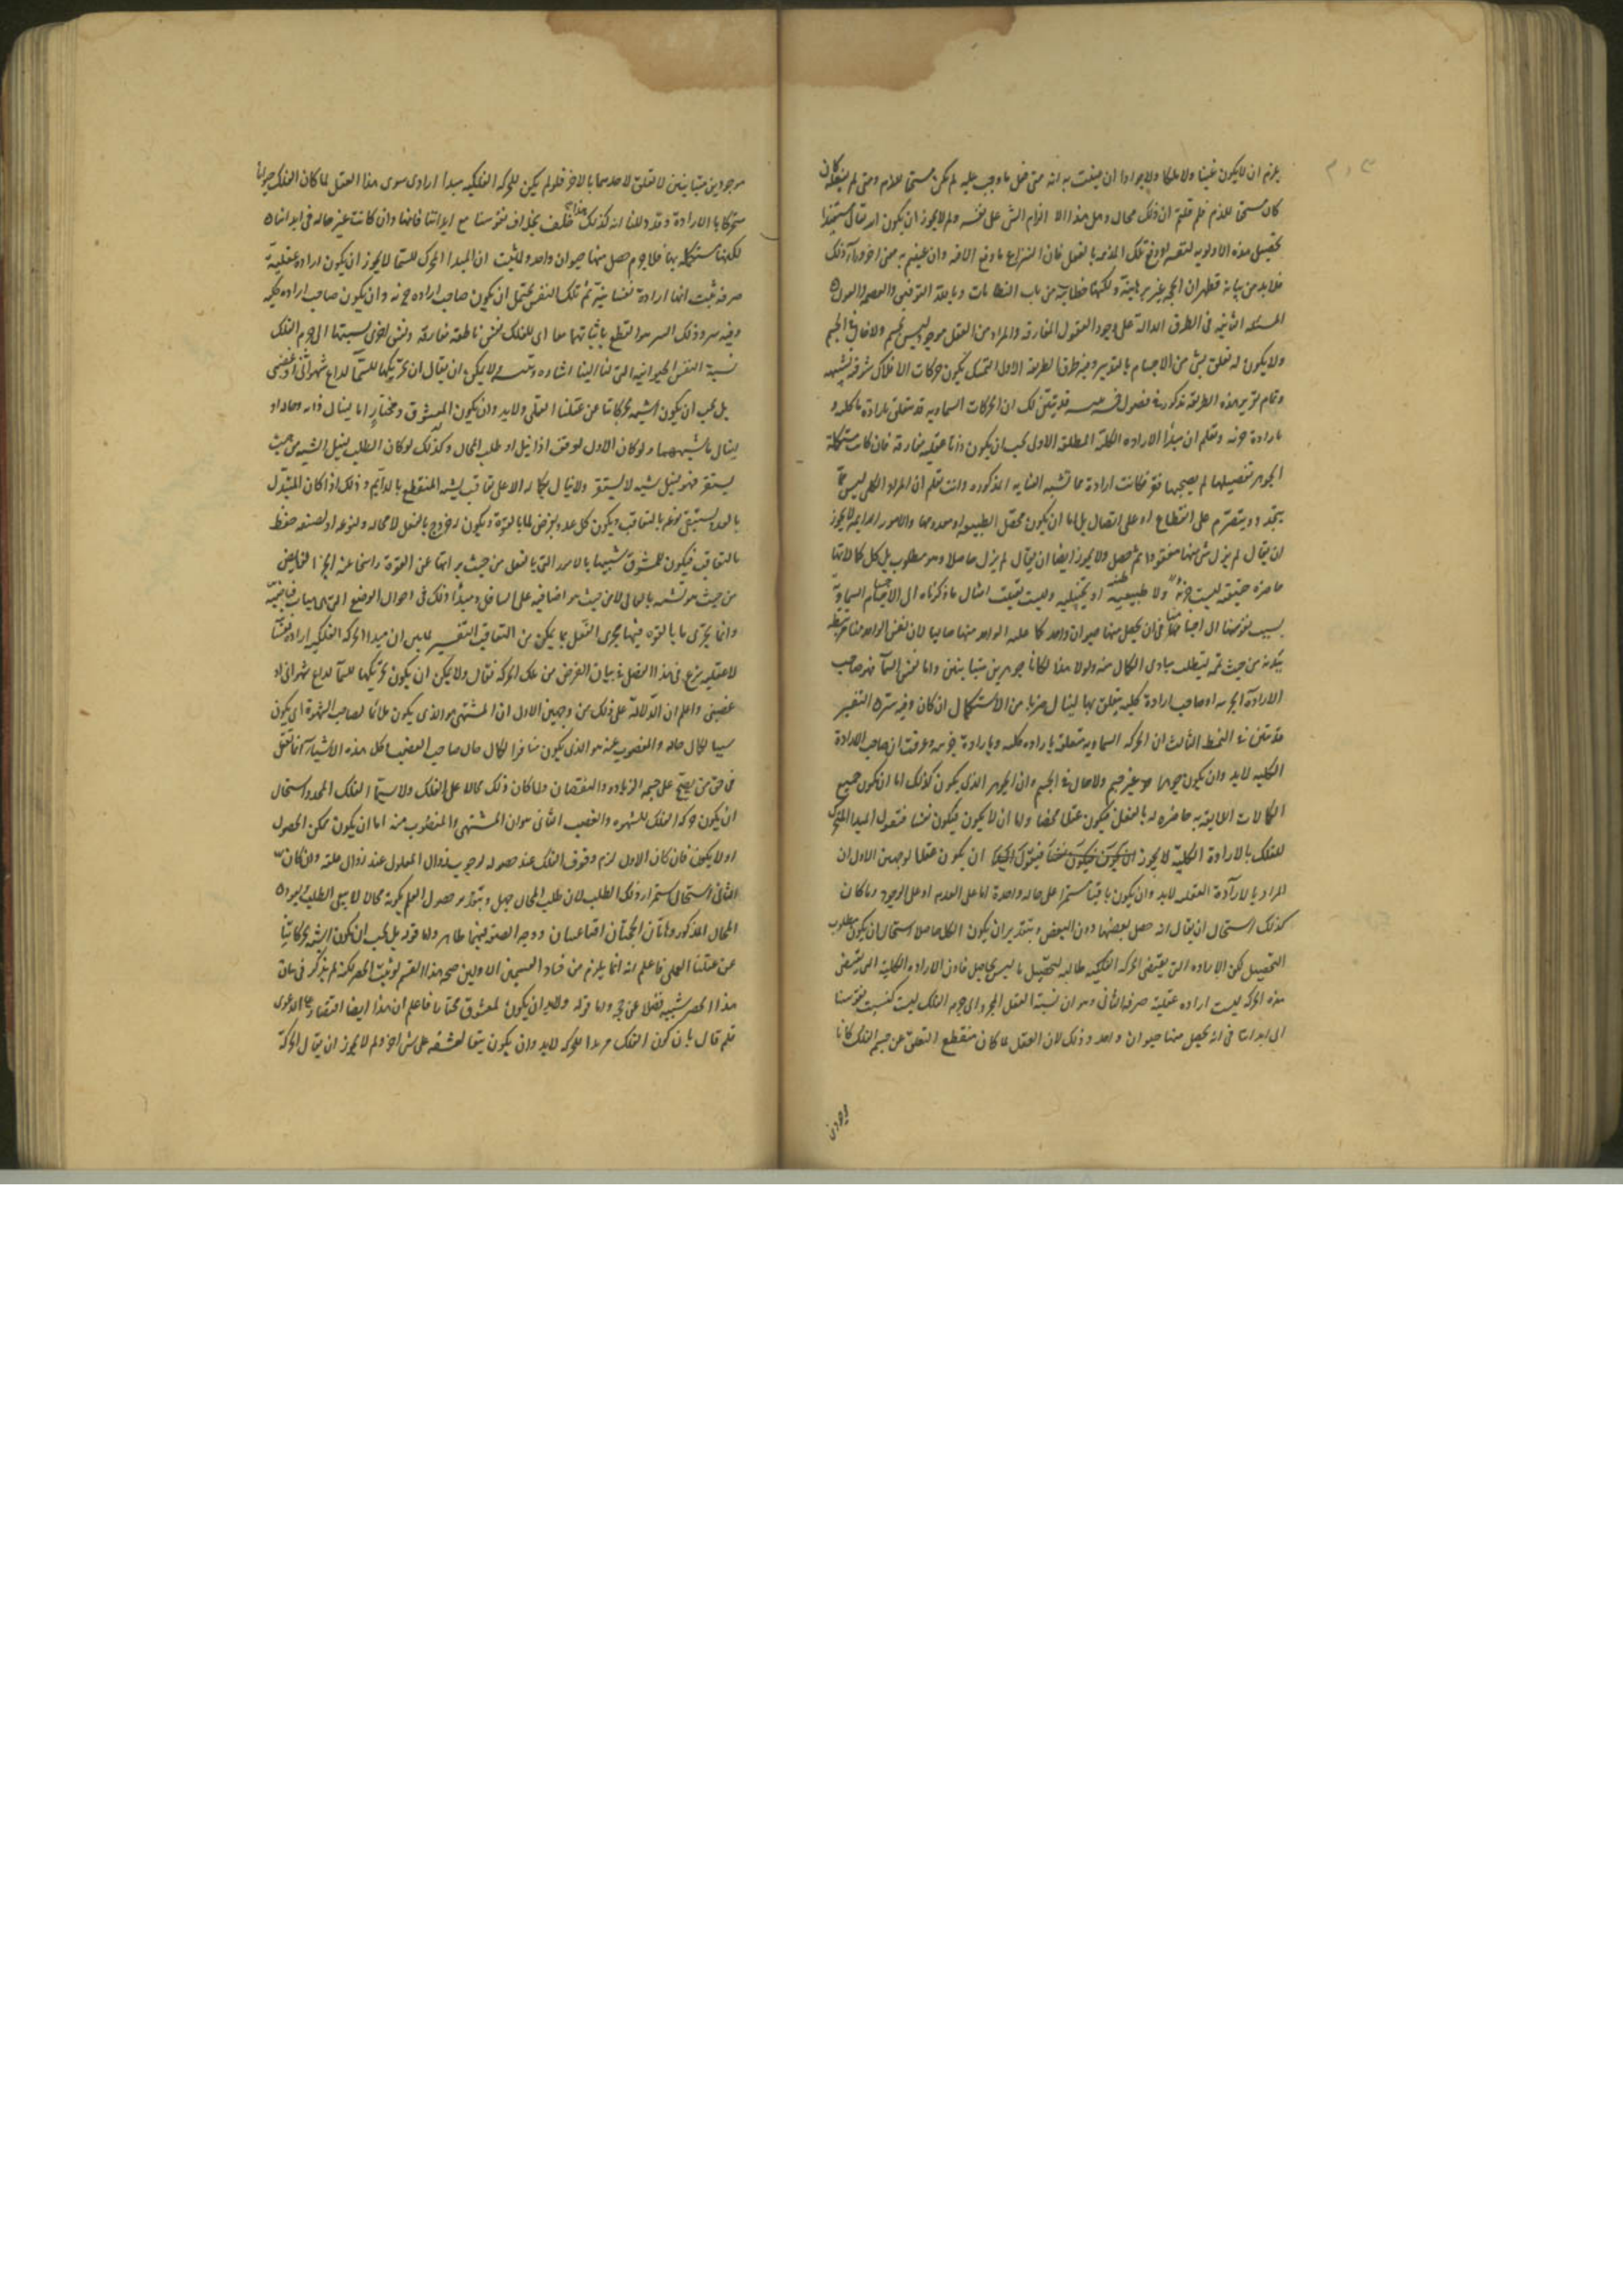 يلزم ان لا يكون غنيا ولا ملكا ولا جوادا ان عنيت به انه متى فعل ما وجب عليه لم يكن مستحقا للذم ومتى لم يفعله كان
كان مستحقا للذم فلم قلتم ان ذلك محال وهل هذا الا الزام الشئ على نفسه ولم لا يجوز ان يكون الله تعالى مستفيدا
بتحصيل هذه الاولوية لنفسه لدفع تلك المذمة بالفعل فان النزاع ما وقع الا فيه وان عنيتم به معنى اخر وراء ذلك
فلا بد من بيانه فظهر ان الحجة غير برهانية ولكنها خطابية من باب الخطابيات وبالله التوفيق والعصمة والعون
المسئلة الثانية فى الطرق الدالة على وجود العقول المفارقة والمراد من العقل موجود ليس بجسم ولا حال فى الجسم
ولا يكون له تعلق بشئ من الاجسام بالتدبير وفيه طرق الطريقة الاولى التمسك بكون حركات الافلاك شوقية تشبهية
وتمام تقرير هذه الطريقة مذكورة فى فصول خمسة قد تبين لك ان الحركات السماوية قد تتعلق بارادة ما كلية و
بارادة جزئية وتعلم ان مبدأ الارادة الكلية المطلقة الاولى يجب ان يكون ذاتا عقلية مفارقة فان كانت مستكملة
الجوهر بفضيلتها لم يصحبها فقر فكانت ارادة مما تشبه العناية المذكورة وانت تعلم ان المراد الكلى ليس مما
يتجدد ويتصرم على انقطاع او على اتصال بل اما ان يكون محصل الطبيعة او معدومها والامور الدائمة لا يجوز
ان يقال لم يزل شئ منها مفقودا ثم حصل ولا يجوز ايضا ان يقال لم يزل حاصلا وهو مطلوب بل كل كمالاتها
حاضرة حقيقية ليست جزئية ولا ظنية او تخيلية وليست نسبة امثال ما ذكرناه الى الاجسام السماوية
نسبة نفوسنا الى اجسامنا فى ان يحصل منها حيوان واحد كما عليه الواحد منا حاليا لان نفس الواحد منا مرتبطة
ببدنه من حيث تمه لتطلب مبادى الكمال منه ولولا هذا لكانا جوهرين متباينين واما نفس السماء فهو صاحب
الارادة الجزئية او صاحب ارادة كلية يتعلق بها لينال ضربا من الاستكمال ان كان وفيه سر التفسير
قد تبين فى النمط الثالث ان الحركة السماوية متعلقة بارادة كلية وبارادة جزئية وعرفت ان صاحب الارادة
الكلية لا بد وان يكون جوهرا غير جسم ولا حال فى الجسم وان الجوهر الذى يكون كذلك اما ان يكون جميع
الكمالات اللايقة به حاضرة له بالفعل فيكون عقلا محضا واما ان لا يكون فيكون نفسا فنقول المبدأ المحرك
للفلك بالارادة الكلية لا يجوز ان يكون عقلا لوجهين الاول ان
المراد بالارادة العقلية لا بد وان يكون باقيا مستمرا على حالة واحدة اما على العدم او على الوجود وما كان
كذلك استحال ان يقال انه حصل بعضها دون البعض وبتقدير ان يكون الكل حاصلا استحال ان يكون مطلوب
التحصيل لكن الارادة التى يقتضى الحركة الفلكية طالبة لتحصيل ما ليس بحاصل فاذن الارادة الكلية التى يقتضى
هذه الحركة ليست ارادة عقلية صرفة الثانى وهو ان نسبة العقل المجرد الى جرم الفلك ليست كنسبة نفوسنا
الى ابداننا فى انه يحصل منهما حيوان واحد وذلك لان العقل لما كان منقطع التعلق عن جسم الفلك كانا
موجودين متباينين لا تعلق لاحدهما بالاخر فلو لم يكن للحركة الفلكية مبدا ارادى سوى هذا العقل لما كان الفلك حيوانا
متحركا بالارادة وقد دللنا انه كذلك هذا خلف بخلاف نفوسنا مع ابداننا فانها وان كانت غير حالة فى ابداننا
لكنها مستكملة بها فلا جرم حصل منها حيوان واحد ولما ثبت ان المبدأ المحرك للسما لا يجوز ان يكون ارادة عقلية
صرفة ثبت انها ارادة نفسانية ثم تلك النفس يحتمل ان يكون صاحب ارادة جزئية وان يكون صاحب ارادة كلية
وفيه سر وذلك السر هو القطع باثباتهما معا اى للفلك نفس ناطقة مفارقة ونفس اخرى نسبتها الى جرم الفلك
نسبة النفس الحيوانية التى لنا الينا اشارة وتنبيه ولا يمكن ان يقال ان تحريكها للسما لداع شهوانى او غضبى
بل يجب ان يكون اشبه بحركاتنا عن عقلنا العملى ولا بد وان يكون المعشوق ومختار اما لينال ذاته وحاله او
لينال ما يشبههما ولو كان الاول لوقف اذا نيل او طلب المحال وكذلك لو كان الطلب لنيل الشبه من حيث
يستقر فهو لنيل شبه لا يستقر ولا ينال بكماله الا على تعاقب يشبه المنقطع بالدائم وذلك اذا كان المتبدل
بالعدد يستبقى نوعه بالتعاقب ويكون كل عدد يفرض لما بالقوة ويكون له خروج بالفعل لا محالة ولنوعه او لصنفه حفظ
بالتعاقب فيكون المتشوق شبيها بالامور التى بالفعل من حيث براءتها عن القوة راشحا عنه الخير الفايض
من حيث هو تشبه بالعالى لا من حيث هو افاضة على السافل ومبدأ ذلك فى احوال الوضع التى هى هيآت فياضية
وانما يجرى ما بالقوة فيها مجرى الفعل بما يمكن من التعاقب التفسير لما بين ان مبدا الحركة الفلكية ارادة نفسانية
لا عقلية شرع فى هذا الفصل فى بيان الغرض من تلك الحركة فقال ولا يمكن ان يكون تحريكها للسمآ لداع شهوانى او
غضبى واعلم ان الدلالة على ذلك من وجهين الاول ان المشتهى هو الذى يكون ملائما لصاحب الشهوة اى يكون
سببا لكمال حاله والمغضوب عنه هو الذى يكون منافرا لكمال حال صاحب الغضب وكل هذه الاشياء انما تحقق
فى حق من يصح على جسمه الزيادة والنقصان ولما كان ذلك محالا على الفلك ولا سيما الفلك المحدد استحال
ان يكون حركة الفلك للشهوة والغضب الثانى هو ان المشتهى والمغضوب منه اما ان يكون ممكن الحصول
او لا يكون فان كان الاول لزم وقوف الفلك عند حصوله لوجوب زوال المعلول عند زوال علته وان كان
الثانى استحال استمرار ذلك الطلب لان طلب المحال جهل وبتقدير حصول العلم بكونه محالا لا يبقى الطلب فيعود
المحال المذكور وهاتان الحجتان اقناعيتان ووجه الضعف فيهما ظاهر واما قوله بل يجب ان يكون اشبه بحركاتنا
عن عقلنا العملى فاعلم انه انما يلزم من فساد القسمين الاولين صحة هذا القسم لو ثبت الحصر لكنه لم يذكر فى بيان
هذا الحصر شبهة فضلا عن حجة واما قوله ولا بد ان يكون لمعشوق مختار فاعلم ان هذا ايضا اقتصار على الدعوى
فلم قال بان كون الفلك مريدا للحركة لا بد وان يكون تبعا لعشقه على شئ اخر ولم لا يجوز ان يقال الحركة